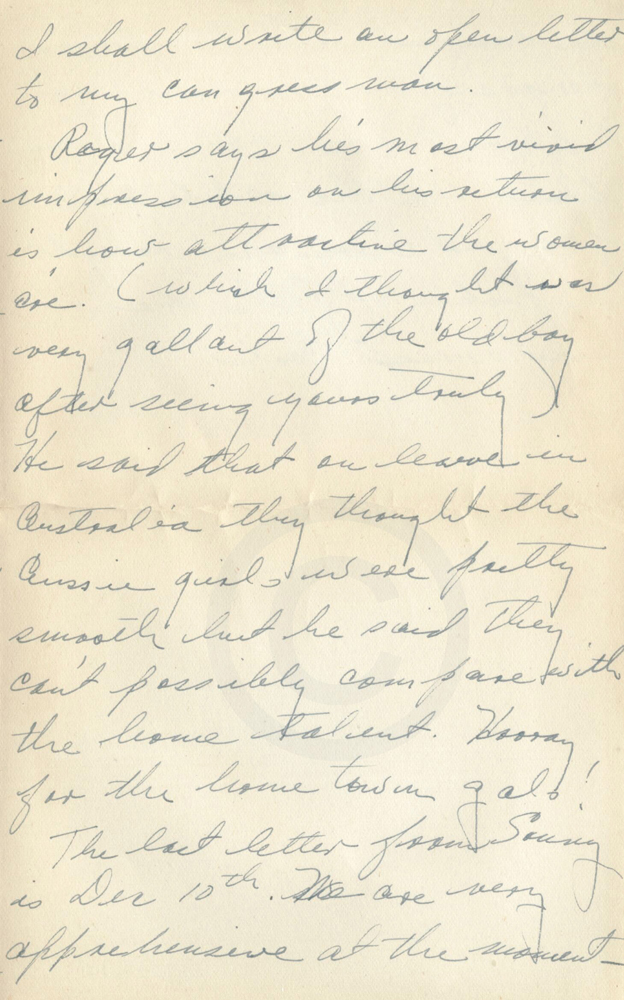 I shall write an open letter
to my congressman.
Roger says his most vivid
impression on his return
is how attractive the women
are. (which I thought was
very gallant of the old boy
after seeing yours truly)
He said that on leave in
Australia they thought the
Aussie girls were pretty
smooth but he said they
can't possibly compare with
the home talent. Hooray
for the home town gals!
The last letter from Sonny
is Dec 10th. We are very
apprehensive at the moment—